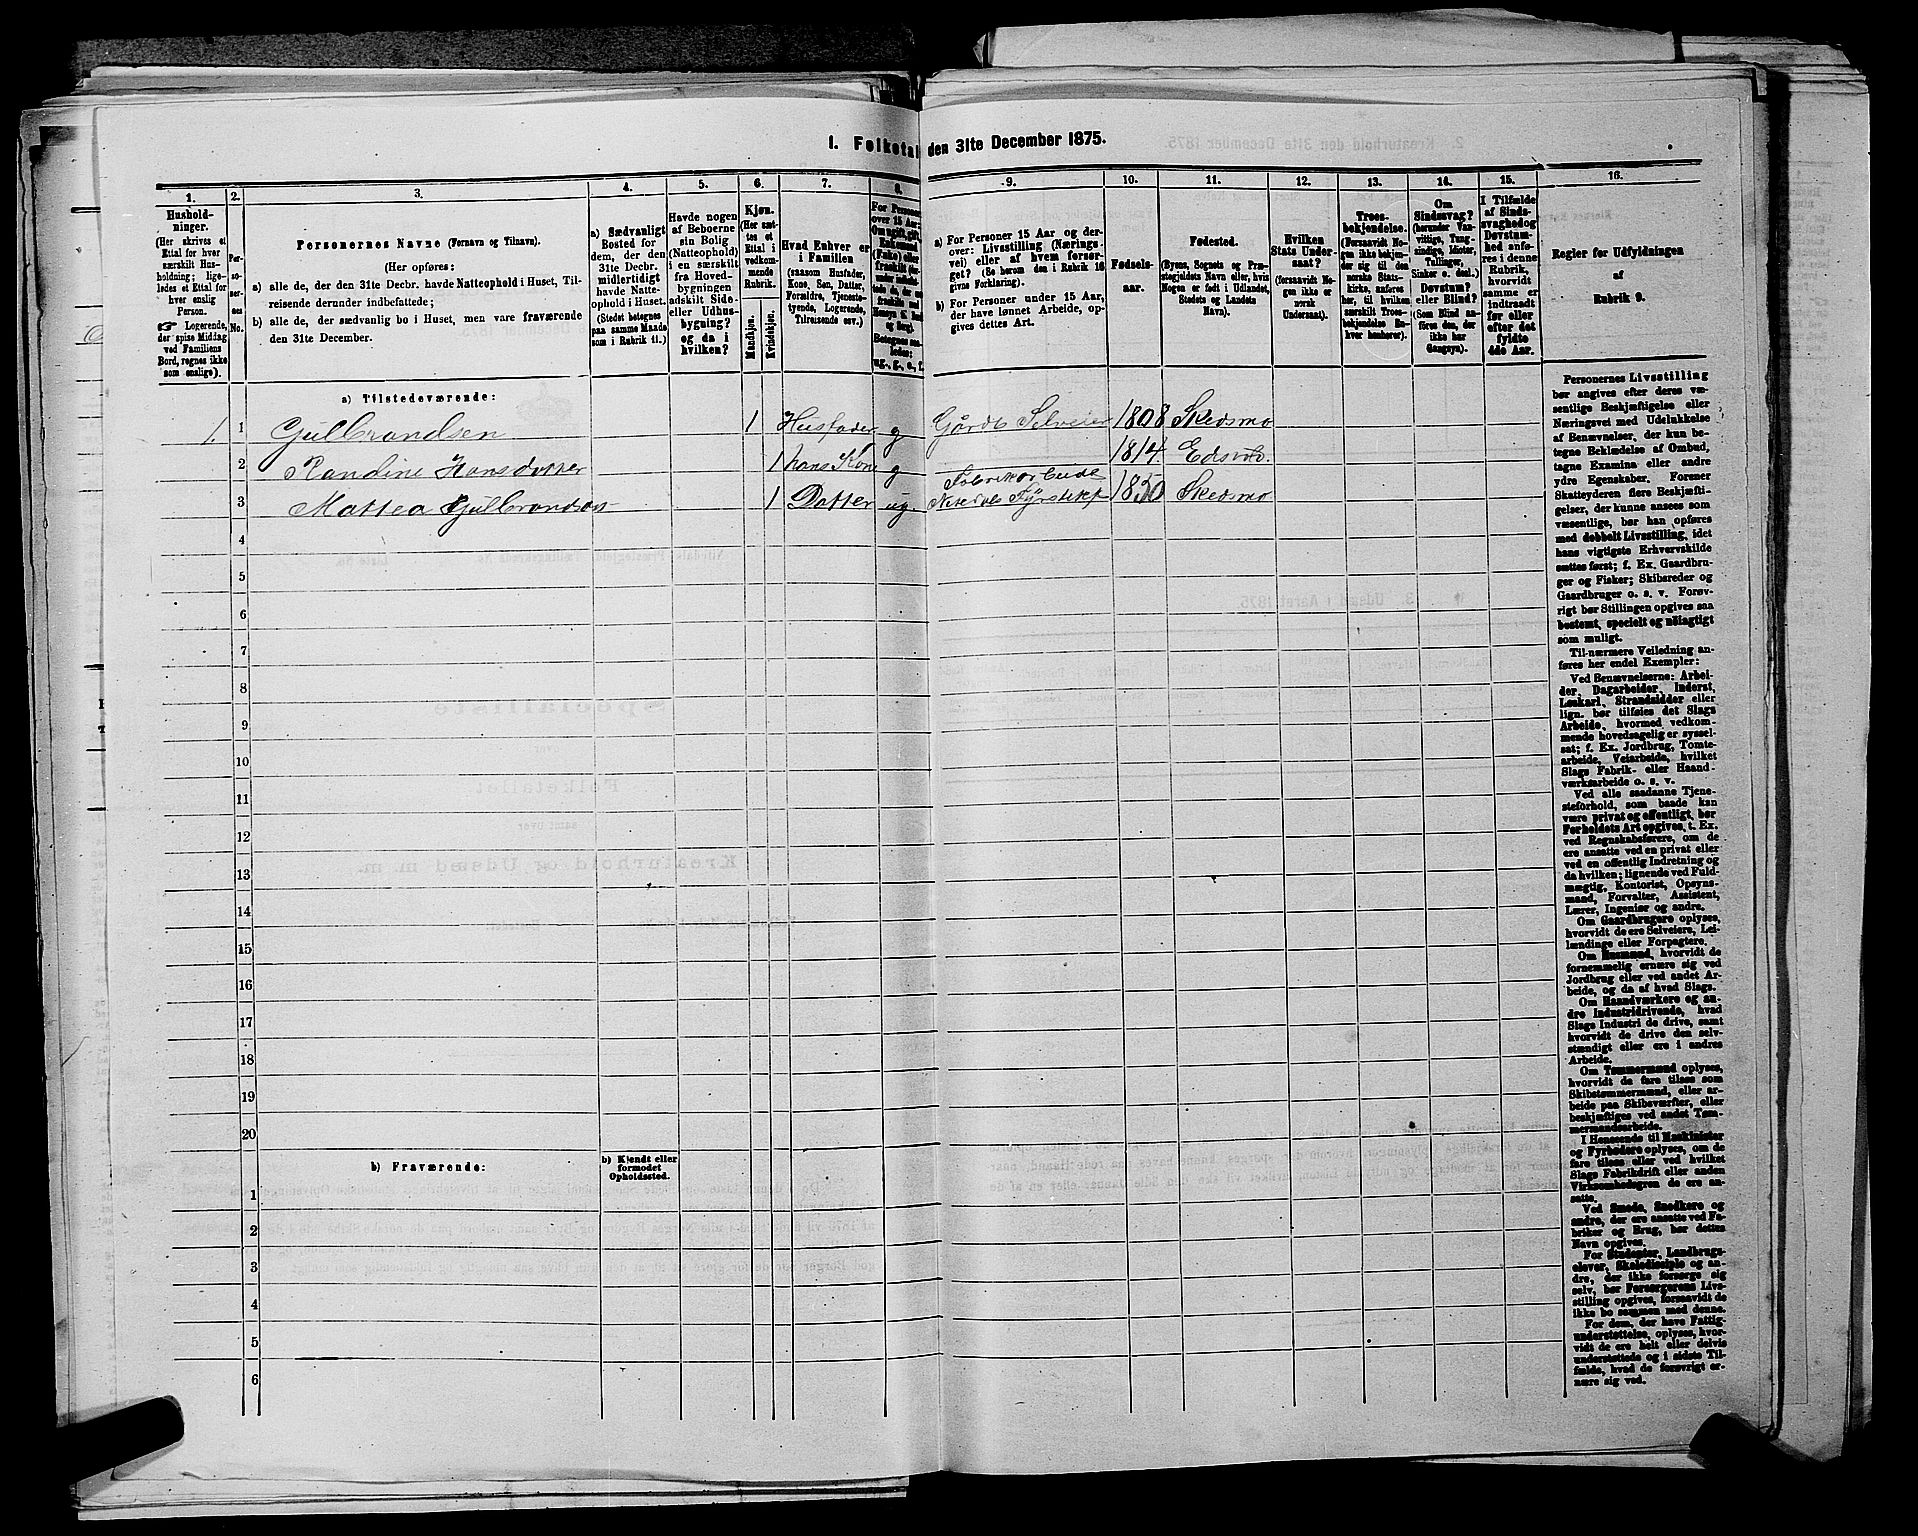 I. Folketal den 31te December 1875.
1. 2. 3. 4. 5. 6. 7. 8. 9. 10. 11. 12. 13. 14. 15. 16.
Hushold-
ninger.
(Her skrives et
Ettal for hver
særskilt Hus-
holdning; lige-
ledes et Ettal for
hver enslig
Person.
☞ Logerende,
der spise Middag
ved Familiens
Bord, regnes ikke
som enslige).
Per-
so-
ner-
nes
No.
Personernes Navne (Fornavn og Tilnavn).
(Her opføres:
a) alle de, der den 31te Decbr. havde Natteophold i Huset, Til-
reisende derunder indbefattede;
b) alle de, der sædvanlig bo i Huset, men vare fraværende
den 31te December.
a) Sædvanligt
Bosted for
dem, der den
31te Decbr.
midlertidigt
havde Natte-
ophold i Huset.
(Stedet betegnes
paa samme Maade
som i Rubrik 11.)
Havde nogen
af Beboerne
sin Bolig
(Natteophold)
i en særskilt
fra Hoved-
bygningen
adskilt Side-
eller Udhus-
bygning?
og da i
hvilken?
Kjøn.
(Her sæt-
tes et
Ettal i
vedkom-
mende
Rubrik.
Mandkjøn.
Kvindekjøn.
Hvad Enhver er
i Familien
(saasom Husfader,
Kone, Søn, Datter,
Forældre, Tjeneste-
tyende, Logerende,
Tilreisende osv.)
For Personer
over 15 Aar:
Om ugift, gift,
a) For Personer 15 Aar og der-
over: Livsstilling (Nærings-
vei) eller af hvem forsør-
get? (Se herom den i Rubrik 16
givne Forklaring).
b) For Personer under 15 Aar,
der have lønnet Arbeide, op-
gives dettes Art.
Fødsels-
aar.
Fødested.
(Byens, Sognets og Præ-
stegjeldets Navn eller, hvis
Nogen er født i Udlandet,
Stedets og Landets
Navn).
Hvilken
Stats Under-
saat?
(forsaavidt No-
gen ikke er
norsk
Undersaat).
Troes-
bekjendelse.
(Forsaavidt No-
gen ikke bekjen-
der sig til den
norske Stats-
kirke, anføres
her, til hvilken
særskilt Troes-
bekjendelse En-
hver henhører).
Om
Sindssvag?
(herunder Van-
vittige, Tung-
sindige, Idioter,
Tullinger,
Sinker o. desl.)
Døvstum?
eller Blind?
(Som Blind an-
føres den, der
ikke har
Gangsyn).
I Tilfælde
af Sinds-
svaghed og
Døvstum-
hed anfø-
res i denne
Rubrik,
hvorvidt
samme er
indtraadt
før eller
efter det
fyldte
4de Aar.
Regler for Udfyldningen
af
Rubrik 9.
a) Tilstedeværende:
1. 1 Gulbrandsen 1 Husfader g Gårdb Selveier 1808 Skedsmo
2 Randine Hansdatter 1 hans Kone g 1814 Edsvol.
3 Mattea Gulbrandsen 1 Datter ug. Fabrikarbeide
Nitedals Fyrstikf 1850 Skedsmo
4
5
6
7
8
9
10
11
12
13
14
15
16
17
18
19
20
b) Fraværende:
b) Kjendt eller
formodet
Opholdssted.
1
2
3
4
5
6
Personernes Livsstilling
bør angives efter deres væ-
sentlige Beskjæftigelse eller
Næringsvei med Udelukkelse
af Benævnelser, der kun be-
tegne Beklædelse af Ombud,
tagne Examina eller andre
ydre Egenskaber. Forener
Skatteyderen flere Beskjæfti-
gelser, der kunne ansees som
væsentlige, bør han opføres
med dobbelt Livsstilling, idet
hans vigtigste Erhvervskilde
sættes først; f. Ex. Gaardbru-
ger og Fisker; Skibsreder og
Gaardbruger o. s. v. Forøv-
rigt bør Stillingen opgives saa
bestemt, specielt og nøiagtigt
som muligt.
Til nærmere Veiledning an-
føres her endel Exempler:
Ved Benævnelserne: Arbei-
der, Dagarbeider, Inderst,
Løskarl, Strandsidder eller
lign. bør tilføies det Slags
Arbeide, hvormed vedkom-
mende hovedsagelig er syssel-
sat; f. Ex. Jordbrug, Tomte-
arbeide, Veiarbeide, hvilket
Slags Fabrik- eller Haand-
værksarbeide o. s. v.
Ved alle saadanne Tjene-
steforhold, som baade kan
være privat og offentligt, bør
Forholdets Art opgives, t. Ex.
ved Regnskabsførere, om de
ere ansatte ved en privat eller
ved en offentlig Indretning og
da hvilken; lignende ved Fuld-
mægtig, Kontorist, Opsyns-
mand, Forvalter, Assistent,
Lærer, Ingeniør og andre.
Om Gaardbrugere oplyses,
hvorvidt de ere Selveiere, Lei-
lændinge eller Forpagtere.
Om Husmænd, hvorvidt de
fornemmelig ernære sig ved
Jordbrug eller ved andet Ar-
beide, og da af hvad Slags.
Om Haandværkere og an-
dre Industridrivende, hvad
Slags Industri de drive, samt
hvorvidt de drive den selv-
stændigt eller ere i andres
Arbeide.
Om Tømmermænd oplyses,
hvorvidt de fare tilsøs som
Skibstømmermænd, eller ar-
beide paa Skibsværfter, eller
beskjæftiges ved andet Tøm-
mermandsarbeide.
I Henseende til Maskinister
og Fyrbødere oplyses, om de
fare tilsøs eller ved hvilket
Slags Fabrikdrift eller anden
Virksomhedsgren de ere an-
satte.
Ved Smede, Snedkere og
andre, der ere ansatte ved Fa-
briker og Brug, bør dettes
Navn opgives.
For Studenter, Landbrugs-
elever, Skoledisciple og an-
dre, der ikke forsørge sig
selv, bør Forsørgerens Livs-
stilling opgives, forsaavidt de
ikke bo sammen med denne.
For dem, der have Fattig-
understøttelse, oplyses, hvor-
vidt de ere helt eller delvis
understøttede og i sidste Til-
fælde, hvad de forøvrigt er-
nære sig ved.